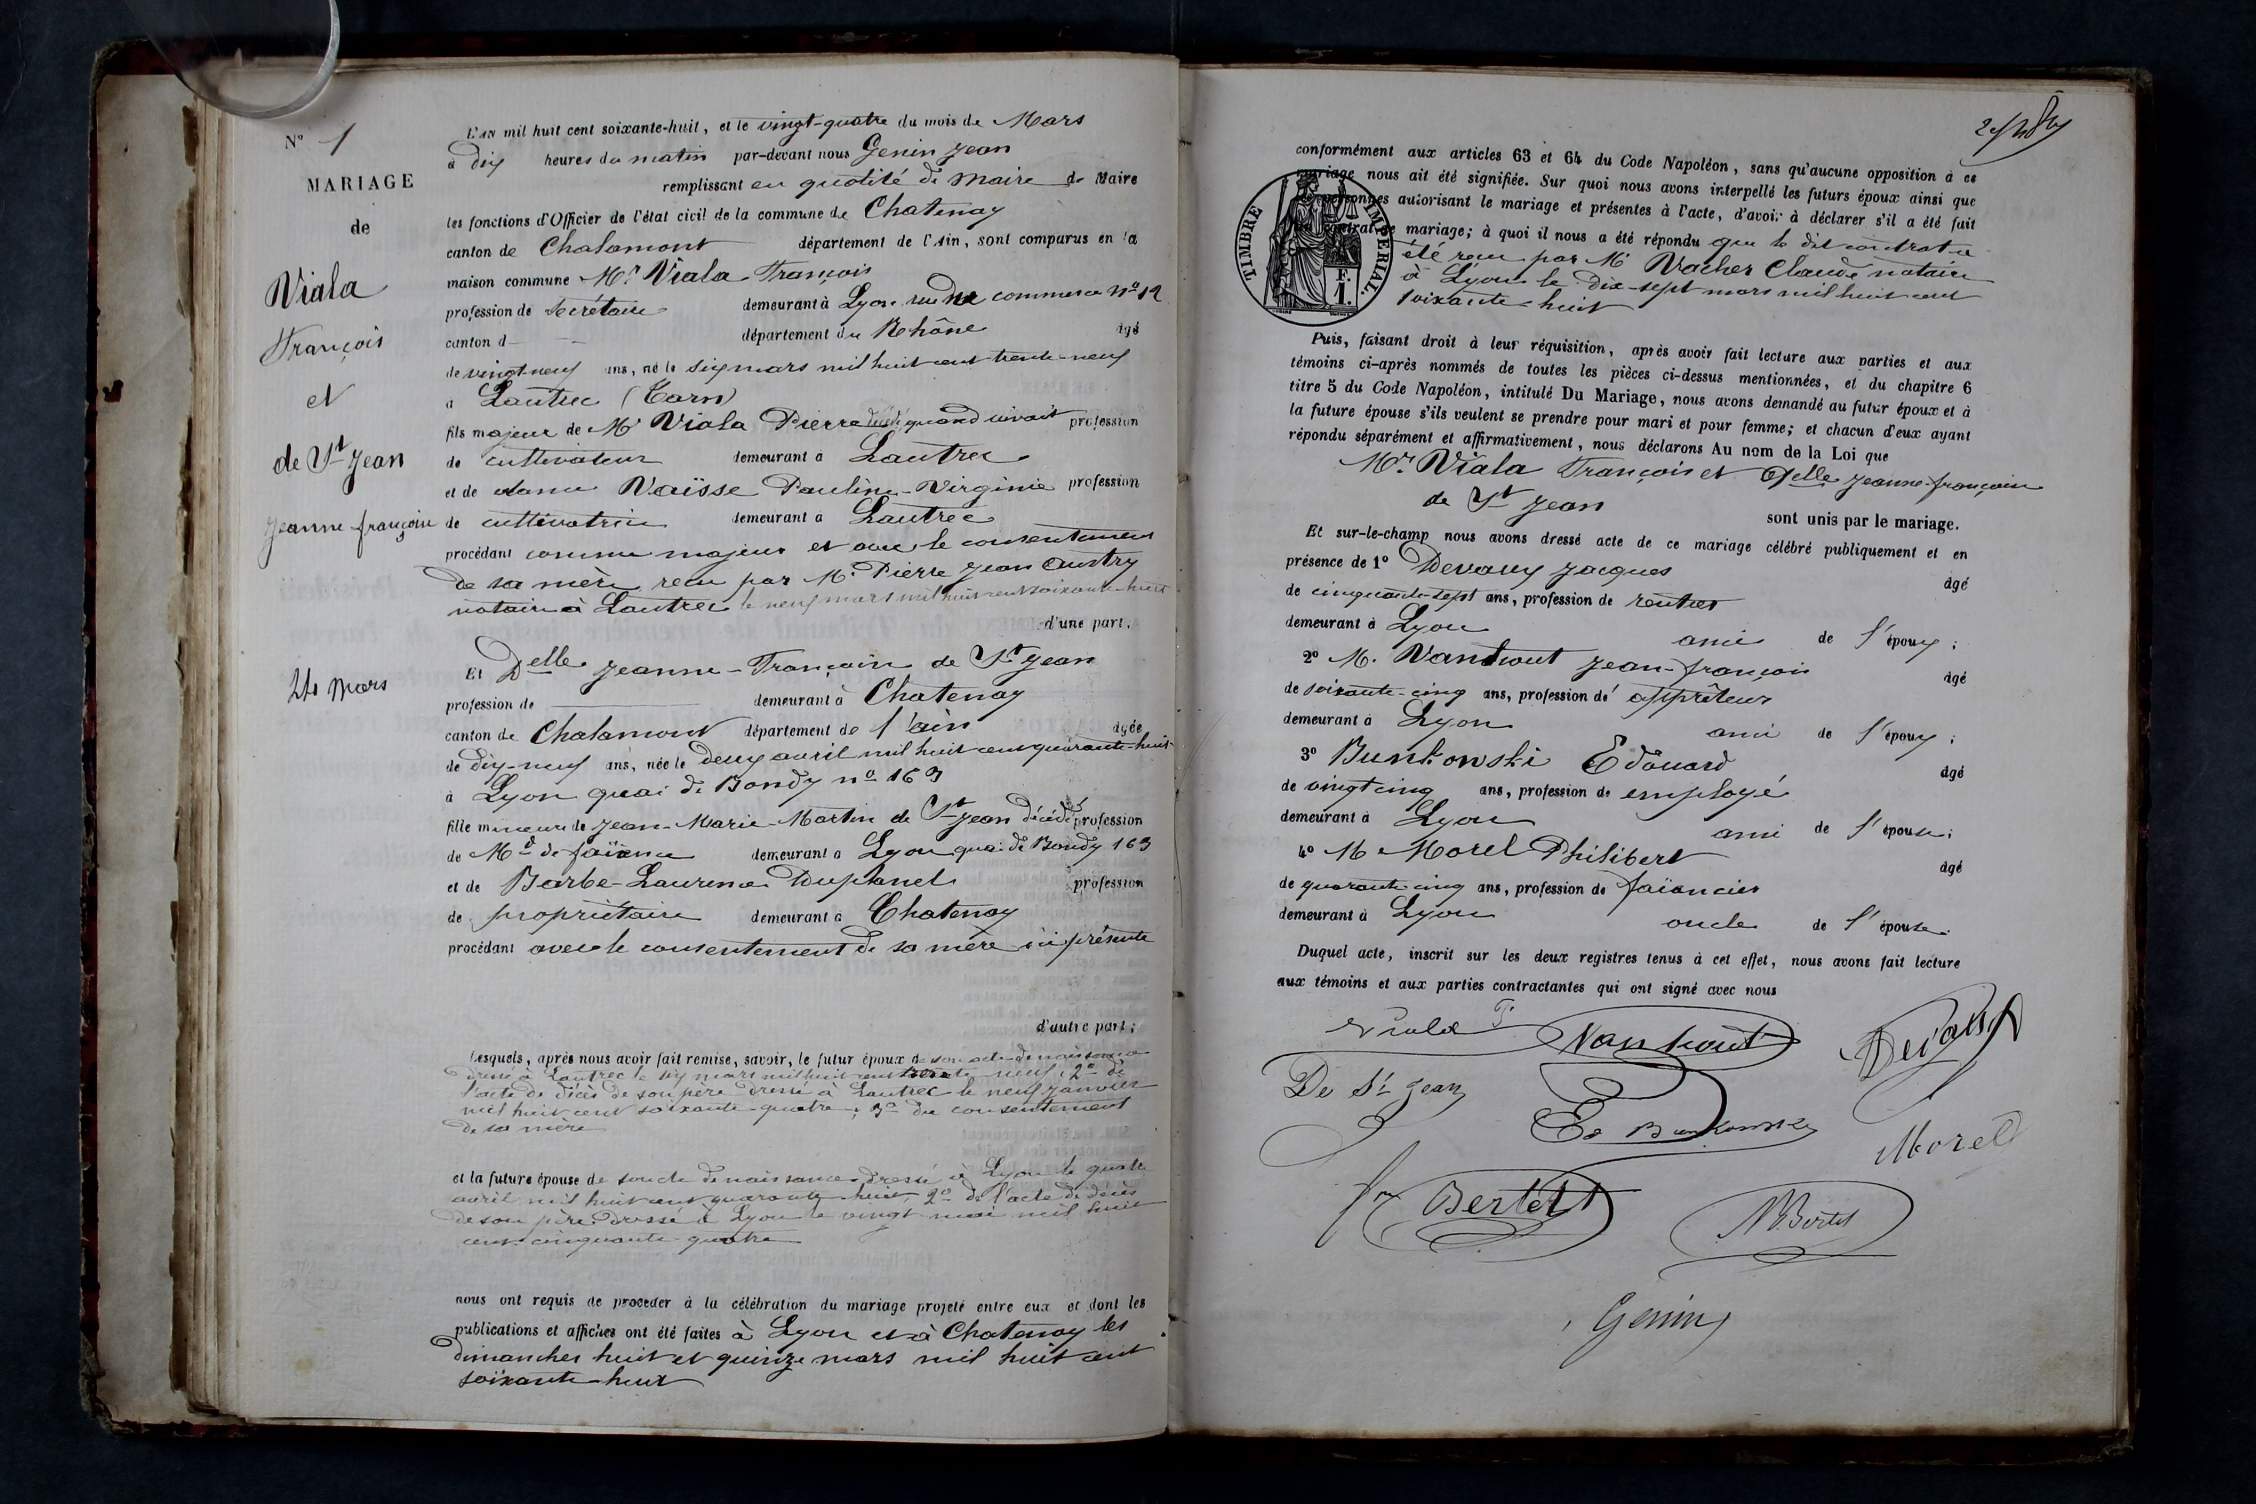 N° 1
MARIAGE
de
Viala
François
et
de St Jean
Jeanne françoise
24 Mars
L'AN mil huit cent soixante-huit, et le vingt-quatre du mois de Mars
à dix heures du matin par-devant nous Genin Jean
remplissant en qualité de Maire de Maire
les fonctions d'Officier de l'état civil de la commune de Chatenay
canton de Chalamont département de l'Ain, sont comparus en la
maison commune Mr Viala François
profession de secrétaire demeurant à Lyon rue du commerce n° 12
canton d département du Rhône âgé
de vingt-neuf ans, né le six mars mil huit cent trente-neuf
à Lautrec (Tarn)
fils majeur de Mr Viala Pierre décédé quand vivait profession
de cultivateur demeurant à Lautrec
et de dame Vaïsse Pauline-Virginie profession
de cultivatrice demeurant à Lautrec
procédant comme majeur et avec le consentement
de sa mère reçu par Me Pierre Jean Austry
notaire à Lautrec le neuf mars mil huit cent soixante-huit
d'une part.
Et Delle Jeanne-Françoise de St Jean
profession de demeurant à Chatenay
canton de Chalamont département de l'ain âgée
de dix-neuf ans, née le deux avril mil huit cent quarante-huit
à Lyon quai de Bondy n° 163
fille mineure de Jean-Marie-Martin de St Jean décédé profession
de Md de faïence demeurant à Lyon quai de Bondy 163
et de Barbe-Laurence Duplanel profession
de propriétaire demeurant à Chatenay
procédant avec le consentement de sa mère ici présente
d'autre part;
Lesquels, après nous avoir fait remise, savoir, le futur époux de son acte de naissance
dressé à Lautrec le six mars mil huit cent trente neuf, 2° de
l'acte de décès de son père dressé à Lautrec le neuf janvier
mil huit cent soixante-quatre; 3° du consentement
de sa mère
et la future épouse de son acte de naissance dressé à Lyon le quatre
avril mil huit cent quarante huit, 2° de l'acte de décès
de son père dressé à Lyon le vingt mai mil huit
cent cinquante-quatre
nous ont requis de procéder à la célébration du mariage projeté entre eux et dont les
publications et affiches ont été faites à Lyon et à Chatenay les
dimanches huit et quinze mars mil huit cent
soixante-huit
conformément aux articles 63 et 64 du Code Napoléon, sans qu'aucune opposition à ce
mariage nous ait été signifiée. Sur quoi nous avons interpellé les futurs époux ainsi que
personnes autorisant le mariage et présentes à l'acte, d'avoir à déclarer s'il a été fait
contrat de mariage; à quoi il nous a été répondu que le dit contrat a
été reçu par Me Vacher Claude notaire
à Lyon le dix-sept mars mil huit cent
soixante-huit
TIMBRE IMPÉRIAL.
F. 1.
Puis, faisant droit à leur réquisition, après avoir fait lecture aux parties et aux
témoins ci-après nommés de toutes les pièces ci-dessus mentionnées, et du chapitre 6
titre 5 du Code Napoléon, intitulé Du Mariage, nous avons demandé au futur époux et à
la future épouse s'ils veulent se prendre pour mari et pour femme; et chacun d'eux ayant
répondu séparément et affirmativement, nous déclarons Au nom de la Loi que
Mr Viala François et Delle Jeanne-françoise
de St Jean
sont unis par le mariage.
Et sur-le-champ nous avons dressé acte de ce mariage célébré publiquement et en
présence de 1° Devaux Jacques âgé
de cinquante-sept ans, profession de rentier
demeurant à Lyon ami de l'époux;
2° M. Vanhout Jean-françois âgé
de soixante-cinq ans, profession de apprêteur
demeurant à Lyon ami de l'époux;
3° Bunkowski Edouard âgé
de vingt cinq ans, profession de employé
demeurant à Lyon ami de l'épouse;
4° M Morel Philibert âgé
de quarante-cinq ans, profession de faïencier
demeurant à Lyon oncle de l'épouse.
Duquel acte, inscrit sur les deux registres tenus à cet effet, nous avons fait lecture
aux témoins et aux parties contractantes qui ont signé avec nous
Viala F.
Vanhout
Devaux
De St Jean
Ed Bunkowski
Morel
Bertet
Genin